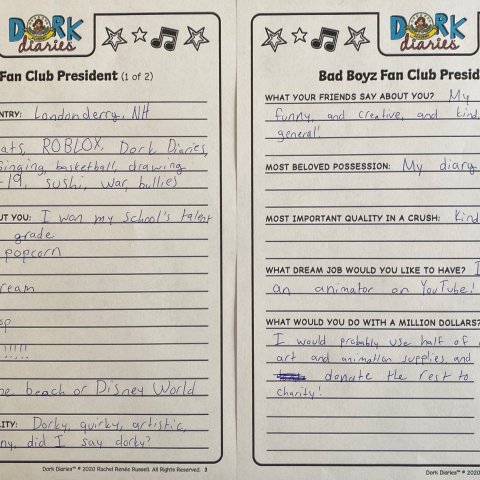 DORK
diaries
Fan Club President (1 of 2)
NTRY: Londonderry, NH
ats, ROBLOX, Dork Diaries,
singing, basketball, drawing
-19, sushi, war, bullies
UT YOU: I won my school's talent
grade
popcorn
ream
op
!!!!!
he beach or Disney World
LITY: Dorky, quirky, artistic,
ny, did I say dorky?
Dork Diaries™ © 2020 Rachel Renée Russell. All Rights Reserved. 3
DORK
diaries
Bad Boyz Fan Club Presid
WHAT YOUR FRIENDS SAY ABOUT YOU? My
funny, and creative, and kind
general!
MOST BELOVED POSSESSION: My diary
MOST IMPORTANT QUALITY IN A CRUSH: Kind
WHAT DREAM JOB WOULD YOU LIKE TO HAVE? I
an animator on YouTube!
WHAT WOULD YOU DO WITH A MILLION DOLLARS?
I would probably use half of
art and animation supplies, and
donate the rest to
charity!
Dork Diaries™ © 2020